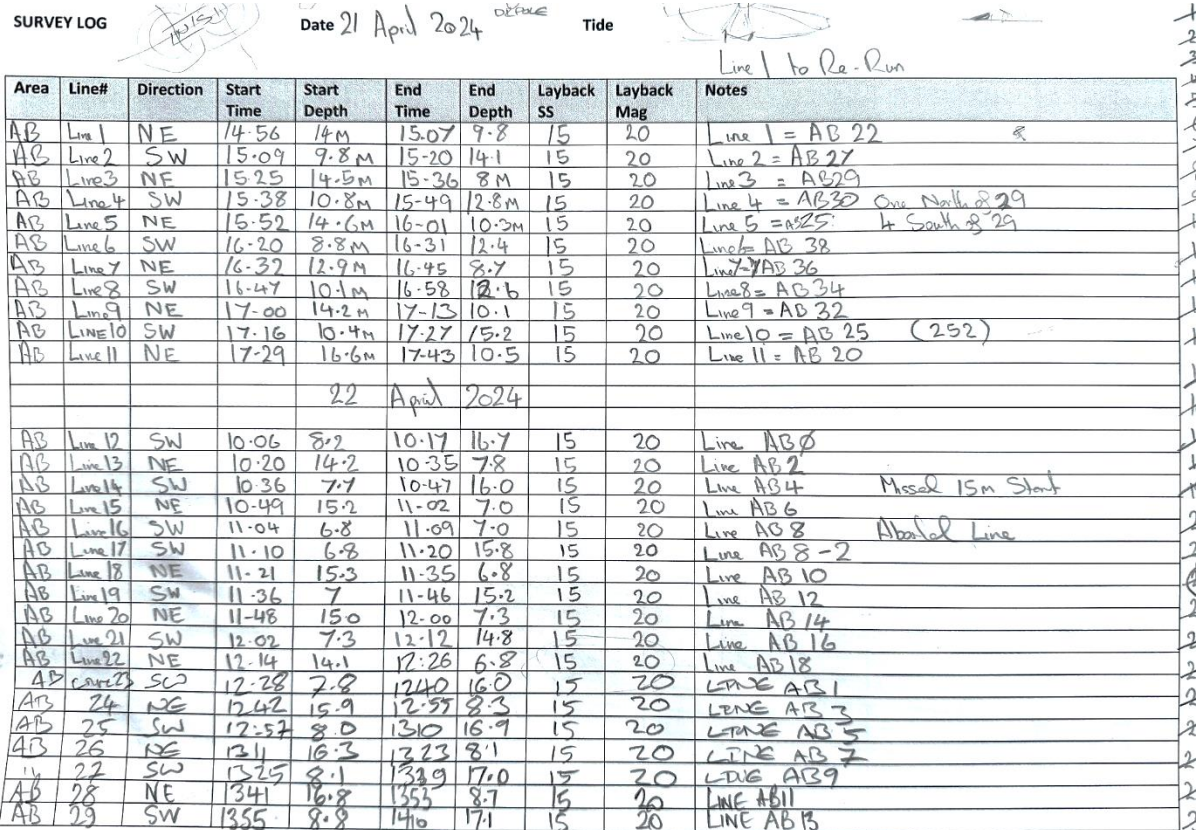 SURVEY LOG Date 21 April 2024 Tide
Line 1 to Re-Run
Area Line# Direction Start Time Start Depth End Time End Depth Layback SS Layback Mag Notes
AB Line 1 NE 14.56 14M 15.07 9.8 15 20 Line 1 = AB 22
AB Line 2 SW 15.09 9.8M 15-20 14.1 15 20 Line 2 = AB 27
AB Line 3 NE 15.25 14.5M 15-36 8M 15 20 Line 3 = AB29
AB Line 4 SW 15.38 10.8M 15-49 12.8M 15 20 Line 4 = AB30 One North of 29
AB Line 5 NE 15.52 14.6M 16-01 10.3M 15 20 Line 5 = AB25 4 South of 29
AB Line 6 SW 16.20 8.8M 16-31 12.4 15 20 Line6= AB 38
AB Line 7 NE 16-32 12.9M 16.45 8.7 15 20 Line7= AB 36
AB Line 8 SW 16-47 10.1M 16.58 12.6 15 20 Line8= AB 34
AB Line 9 NE 17-00 14.2M 17-13 10.1 15 20 Line 9 = AB 32
AB LINE 10 SW 17.16 10.4M 17.27 15.2 15 20 Line 10 = AB 25 (252)
AB Line 11 NE 17-29 16.6M 17-43 10.5 15 20 Line 11 = AB 20
22 April 2024
AB Line 12 SW 10.06 8.2 10.17 16.7 15 20 Line AB Ø
AB Line 13 NE 10.20 14.2 10.35 7.8 15 20 Line AB 2
AB Line 14 SW 10.36 7.7 10-47 16.0 15 20 Line AB 4 Missed 15m Start
AB Line 15 NE 10-49 15.2 11-02 7.0 15 20 Line AB 6
AB Line 16 SW 11-04 6.8 11.09 7.0 15 20 Line AB 8 Aborted Line
AB Line 17 SW 11.10 6.8 11.20 15.8 15 20 Line AB 8-2
AB Line 18 NE 11-21 15.3 11-35 6.8 15 20 Line AB 10
AB Line 19 SW 11-36 7 11-46 15.2 15 20 Line AB 12
AB Line 20 NE 11-48 15.0 12.00 7.3 15 20 Line AB 14
AB Line 21 SW 12.02 7.3 12-12 14.8 15 20 Line AB 16
AB Line 22 NE 12.14 14.1 12:26 6.8 15 20 Line AB 18
AB Line 23 SW 12-28 7.8 1240 16.0 15 20 LINE AB 1
AB 24 NE 1242 15.9 12-55 8.3 15 20 LINE AB 3
AB 25 SW 12-57 8.0 1310 16.9 15 20 LINE AB 5
AB 26 NE 1311 16.3 1323 8.1 15 20 LINE AB 7
" 27 SW 1325 8.1 1339 17.0 15 20 LINE AB9
AB 28 NE 1341 16.8 1353 8.7 15 20 LINE AB11
AB 29 SW 1355 8.8 1410 17.1 15 20 LINE AB 13